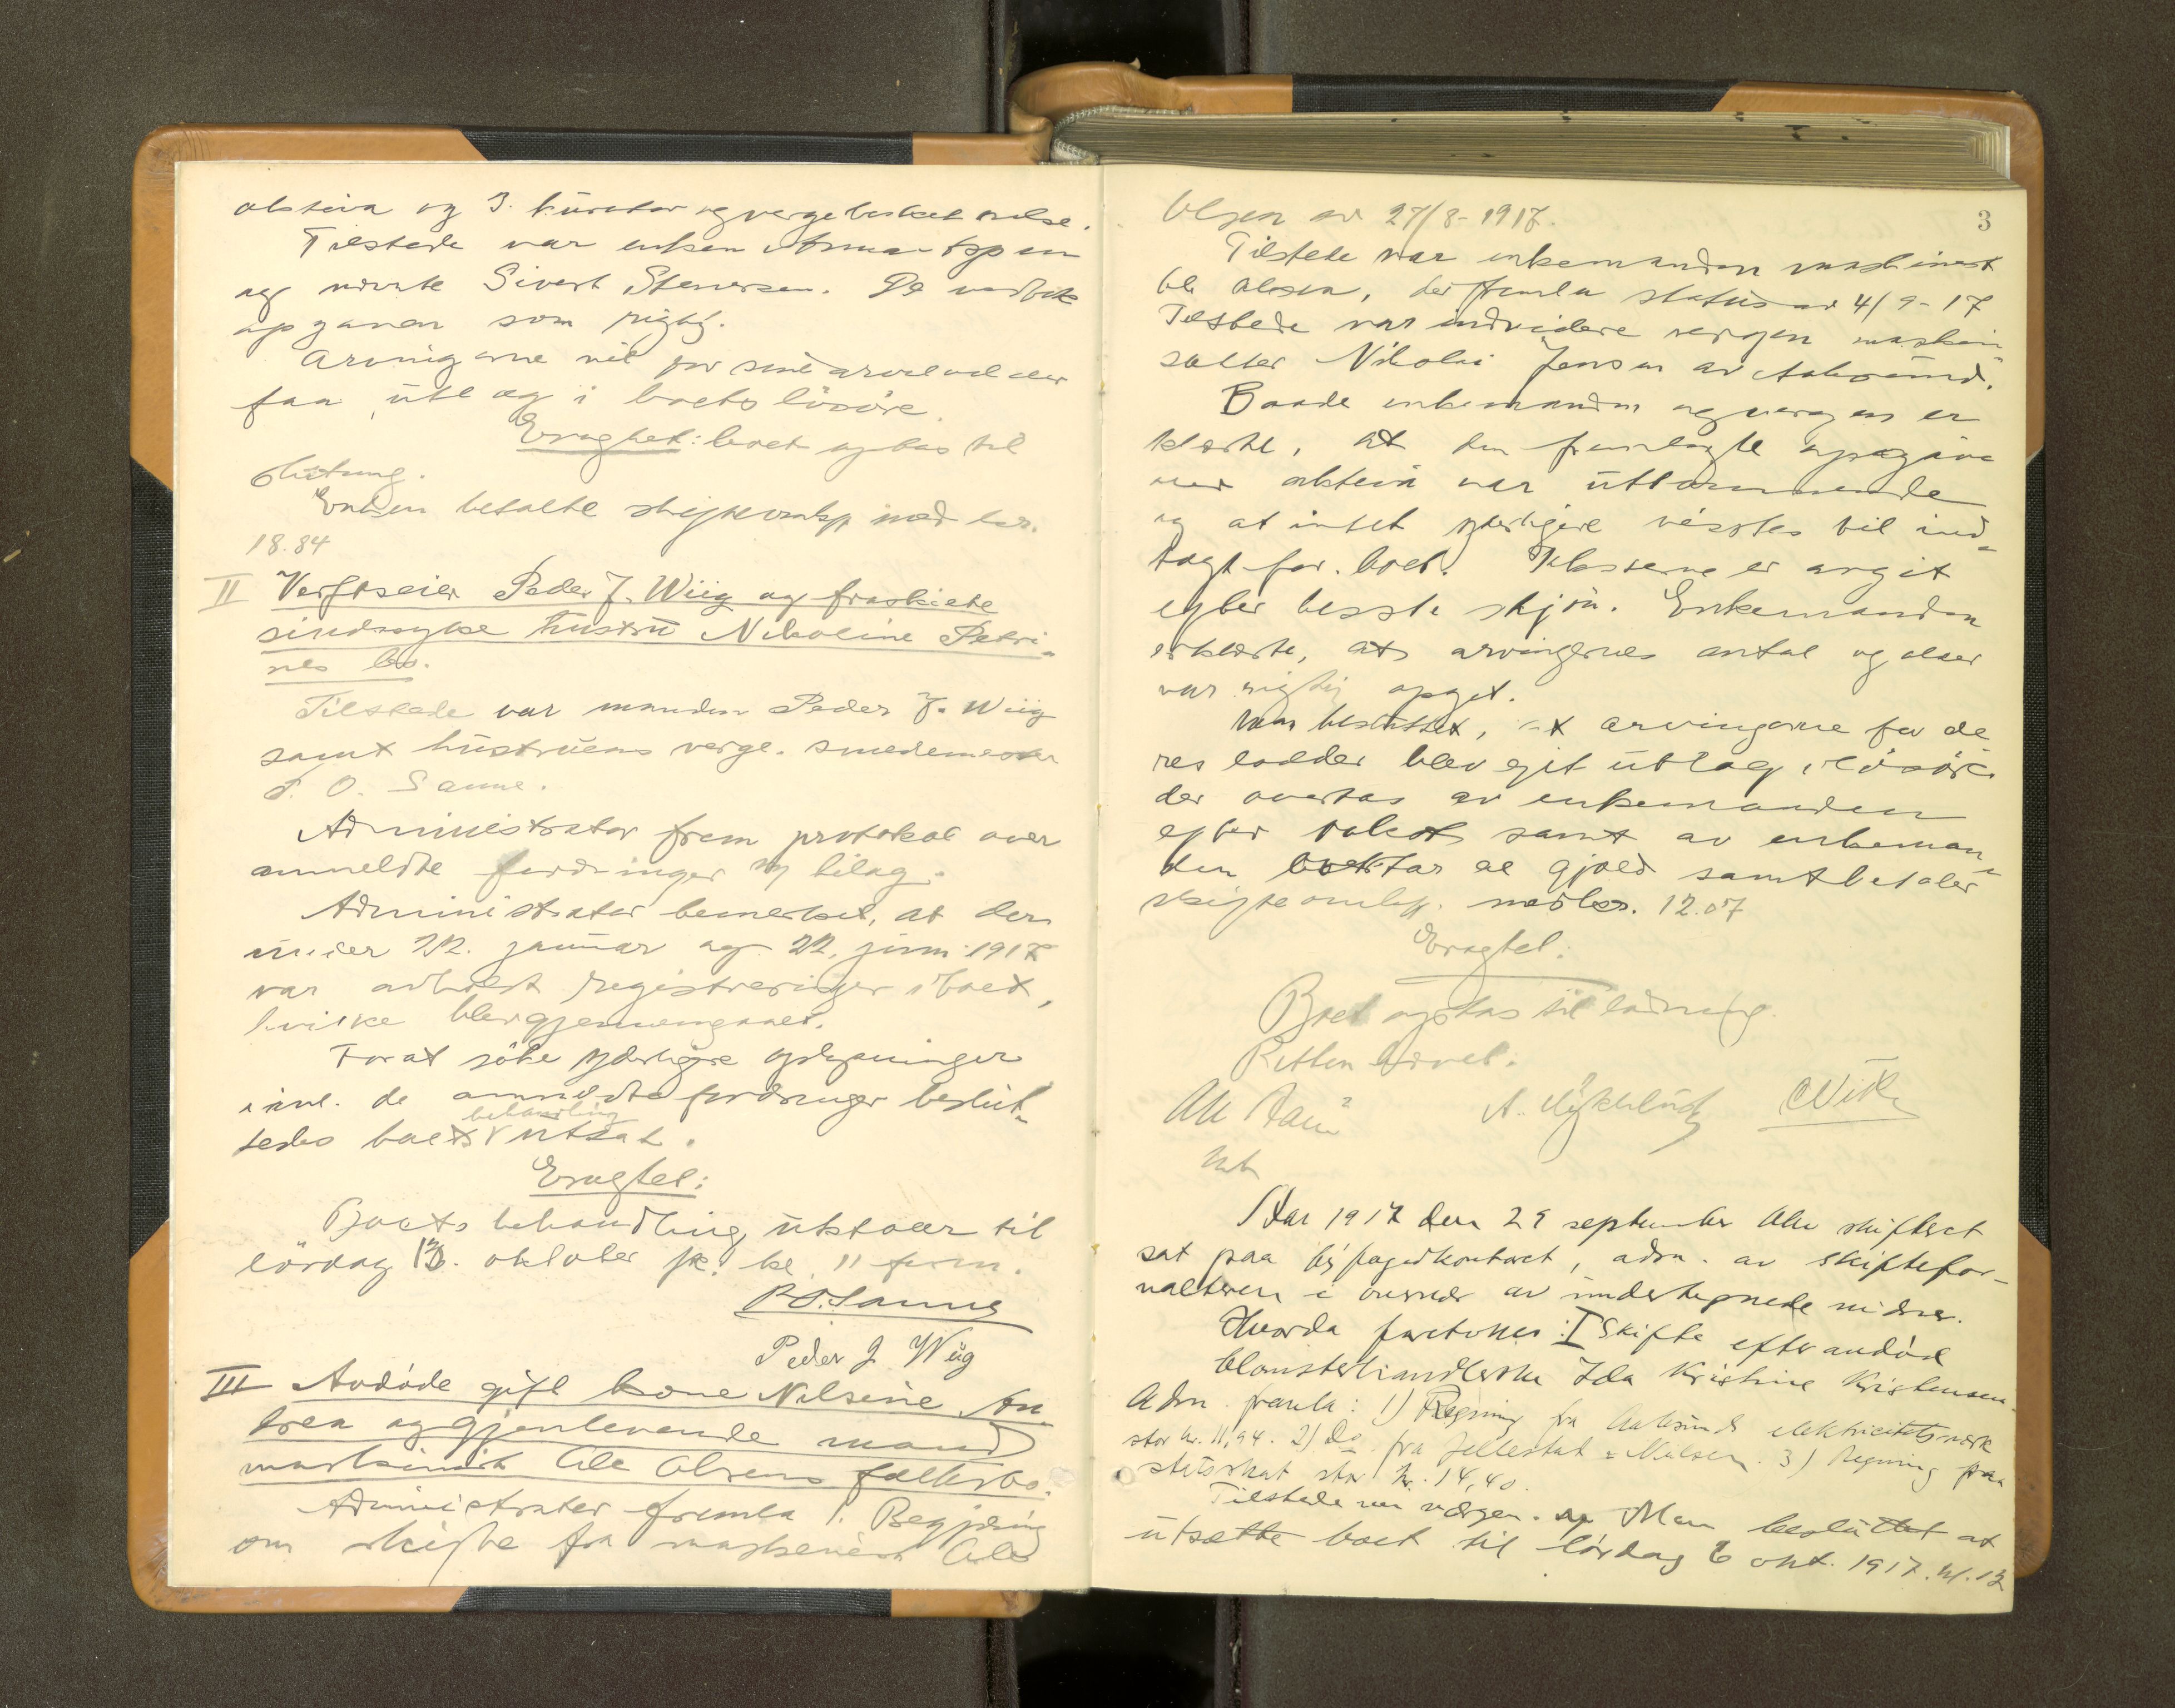 aktiva og 3. kurator og vergebeskikkelse.
Tilstede var enken Anna Espesen
og vidnte Sivert Stenersen. De vedtok
opgaven som rigtig.
Arvingerne vil for sine arvelodder
faa utlæg i boets løsøre.
Eragtet: boet optas til
slutning.
Enken betalte skifteomk. med kr.
18.84
II Verftseier Peder J. Wiig og fraskilte
sindssyke hustru Nikoline Petri-
nes bo.
Tilstede var manden Peder J. Wiig
samt hustruens verge. smedemester
P. O. Sanne.
Administrator frem protokol over
anmeldte fordringer m/ bilag.
Administrator bemerket, at der
under 22. januar og 22. juni 1917
var avholdt registreringer i boet,
hvilke blev gjennemgaaet.
For at söke yderligere oplysninger
i anl. de anmeldte fordringer beslut-
tedes boets behandling utsat.
Eragtet:
Boets behandling utstaaer til
lördag 13. oktober fk. kl. 11 form.
P O. Sanne
Peder J. Wiig
III Avdöde gift kone Nilsine An-
drea og gjenlevende mand
maskinist Ole Olsens fællesbo.
Administrator fremla 1. Begjæring
om skifte fra maskinist Ole
3
Olsen av 27/8-1917.
Tilstede var enkemanden maskinist
Ole Olsen, der fremla status av 4/9-17
Tilstede var endvidere vergen maskin-
sætter Nikolai Jensen av Aalesund.
Baade enkemanden og vergen er
klærte, at den fremlagte opgave
over aktiva var uttømmende
og at intet yderligere visstes til ind-
tægt for boet. Klosserne er angit
efter bedste skjøn. Enkemanden
erklærte, at arvingernes antal og alder
var rigtig opgit.
Man besluttet, at arvingerne for de
res lodder blev git utlæg i løsøre
der overtas av enkemanden
efter takst samt av enkeman-
den overtar al gjæld samt betaler
skifteomk. med kr. 12.07
Eragtet:
Boet optas til lodning.
Retten hævet.
Aar 1917 den 29 september blev skifteret
sat paa byfogedkontoret, adm. av skiftefor-
valteren i overvær av undertegnede vidner.
Hvorda foretokes: I Skifte efter avdöd
blomsterhandlerske Ida Kristine Kristensen.
Adm. fremla: 1) Regning fra Aalesunds elektricitetsverk
stor kr. 11,94. 2) Do fra Jellestad & Nielsen. 3) Regning paa
statsskat stor kr. 14,40.
Tilstede var værgen. Man besluttet at
utsætte boet til lördag 6 okt. 1917. kl. 12